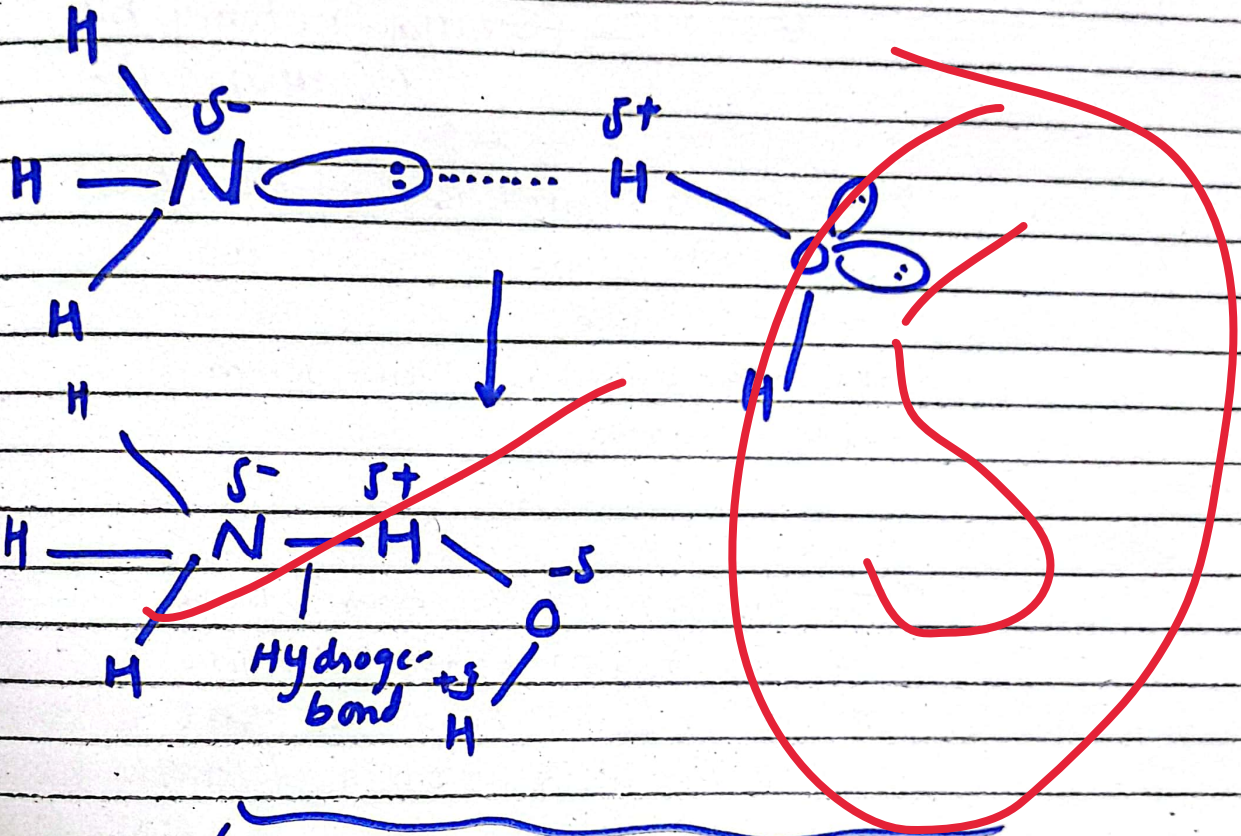 H
δ- δ+
H — N : ....... H
O : :
H
H
H
δ- δ+
H — N — H
-δ
O
Hydrogen
bond +δ
H
H
5